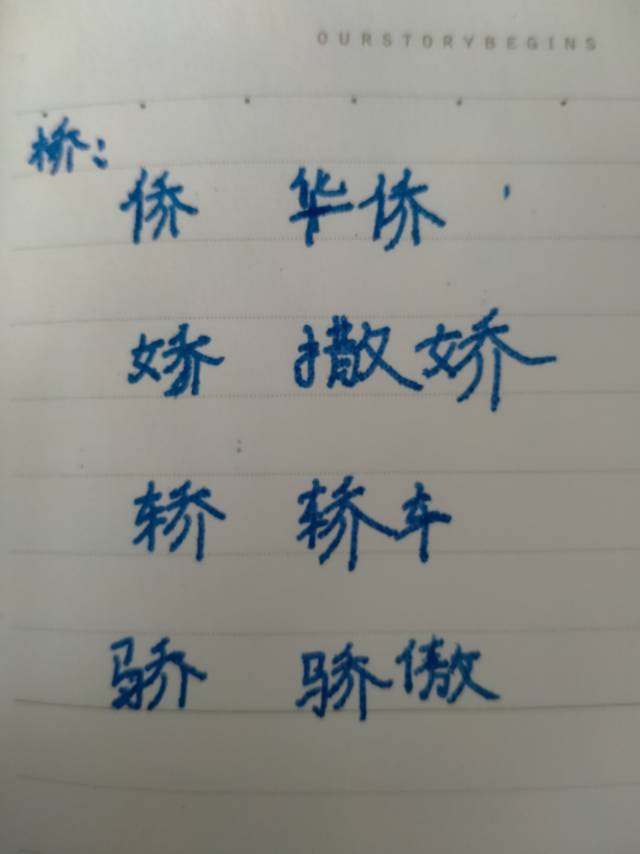 OURSTORYBEGINS
桥：
侨 华侨
娇 撒娇
轿 轿车
骄 骄傲